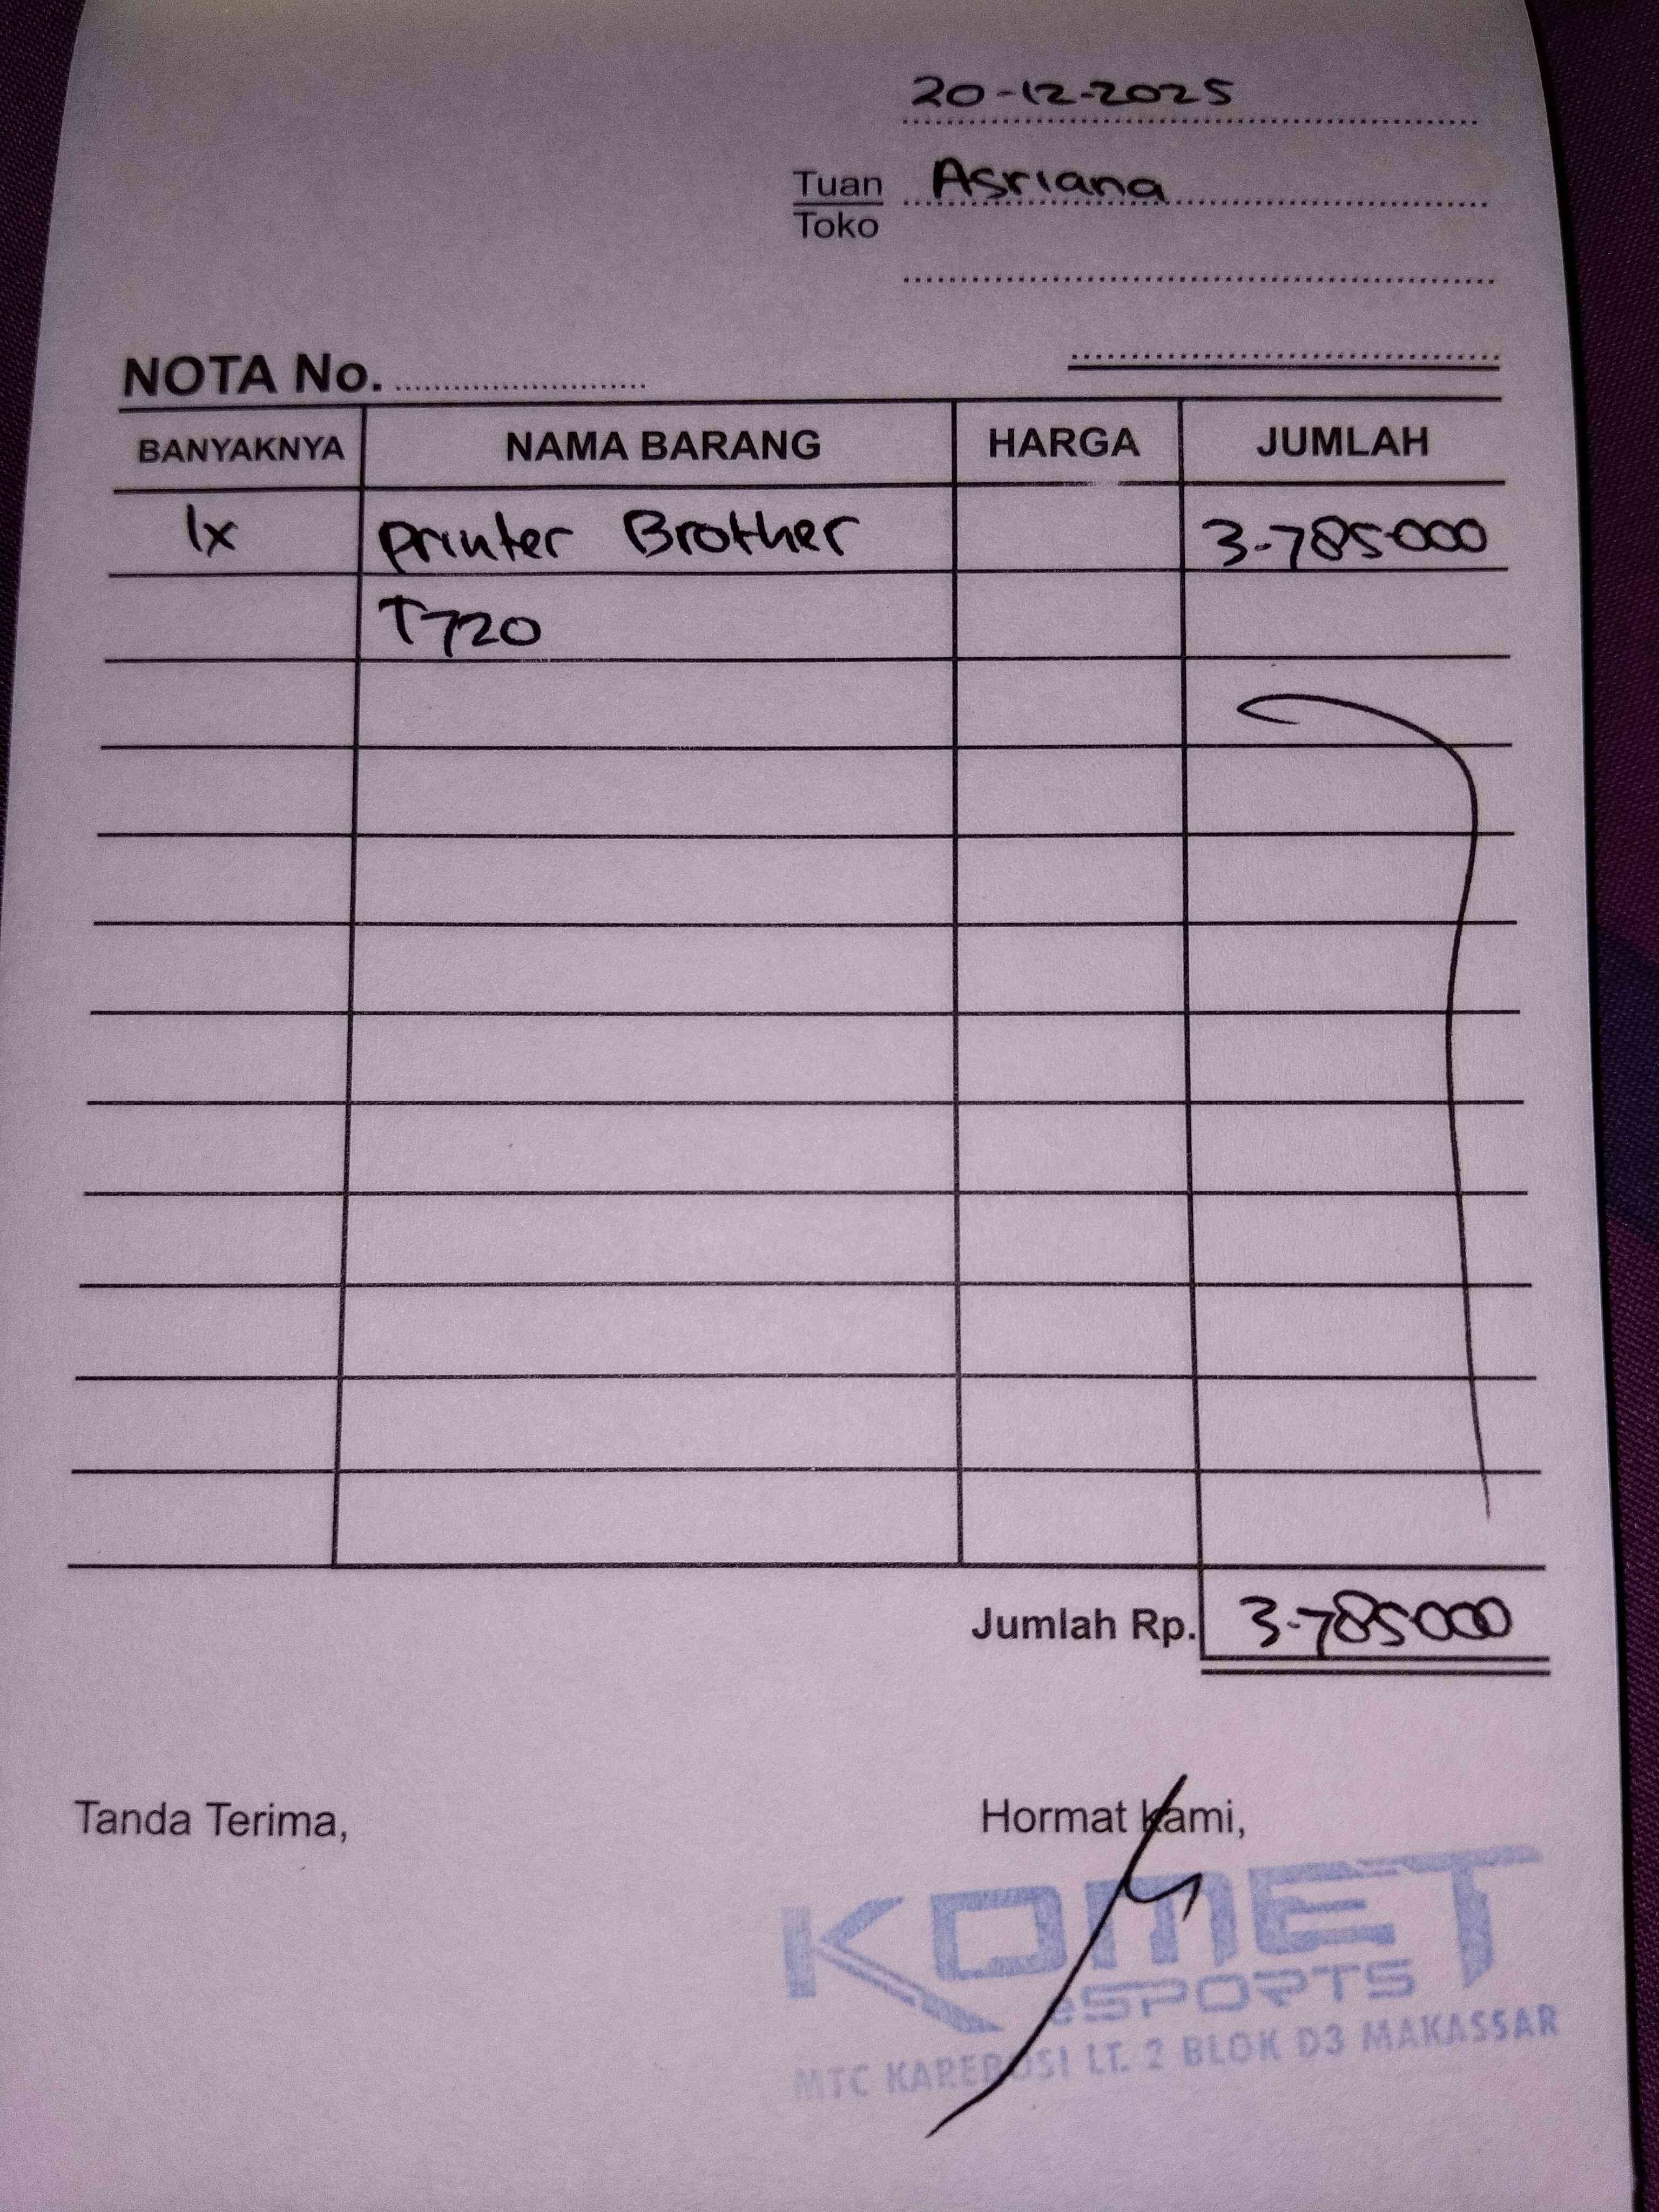 20-12-2025
Tuan Asriana
Toko
NOTA No.
BANYAKNYA NAMA BARANG HARGA JUMLAH
1x Printer Brother 3.785.000
T720
Jumlah Rp. 3.785.000
Tanda Terima, Hormat Kami,
KOMET
eSPORTS
MTC KAREBOSI LT. 2 BLOK D3 MAKASSAR